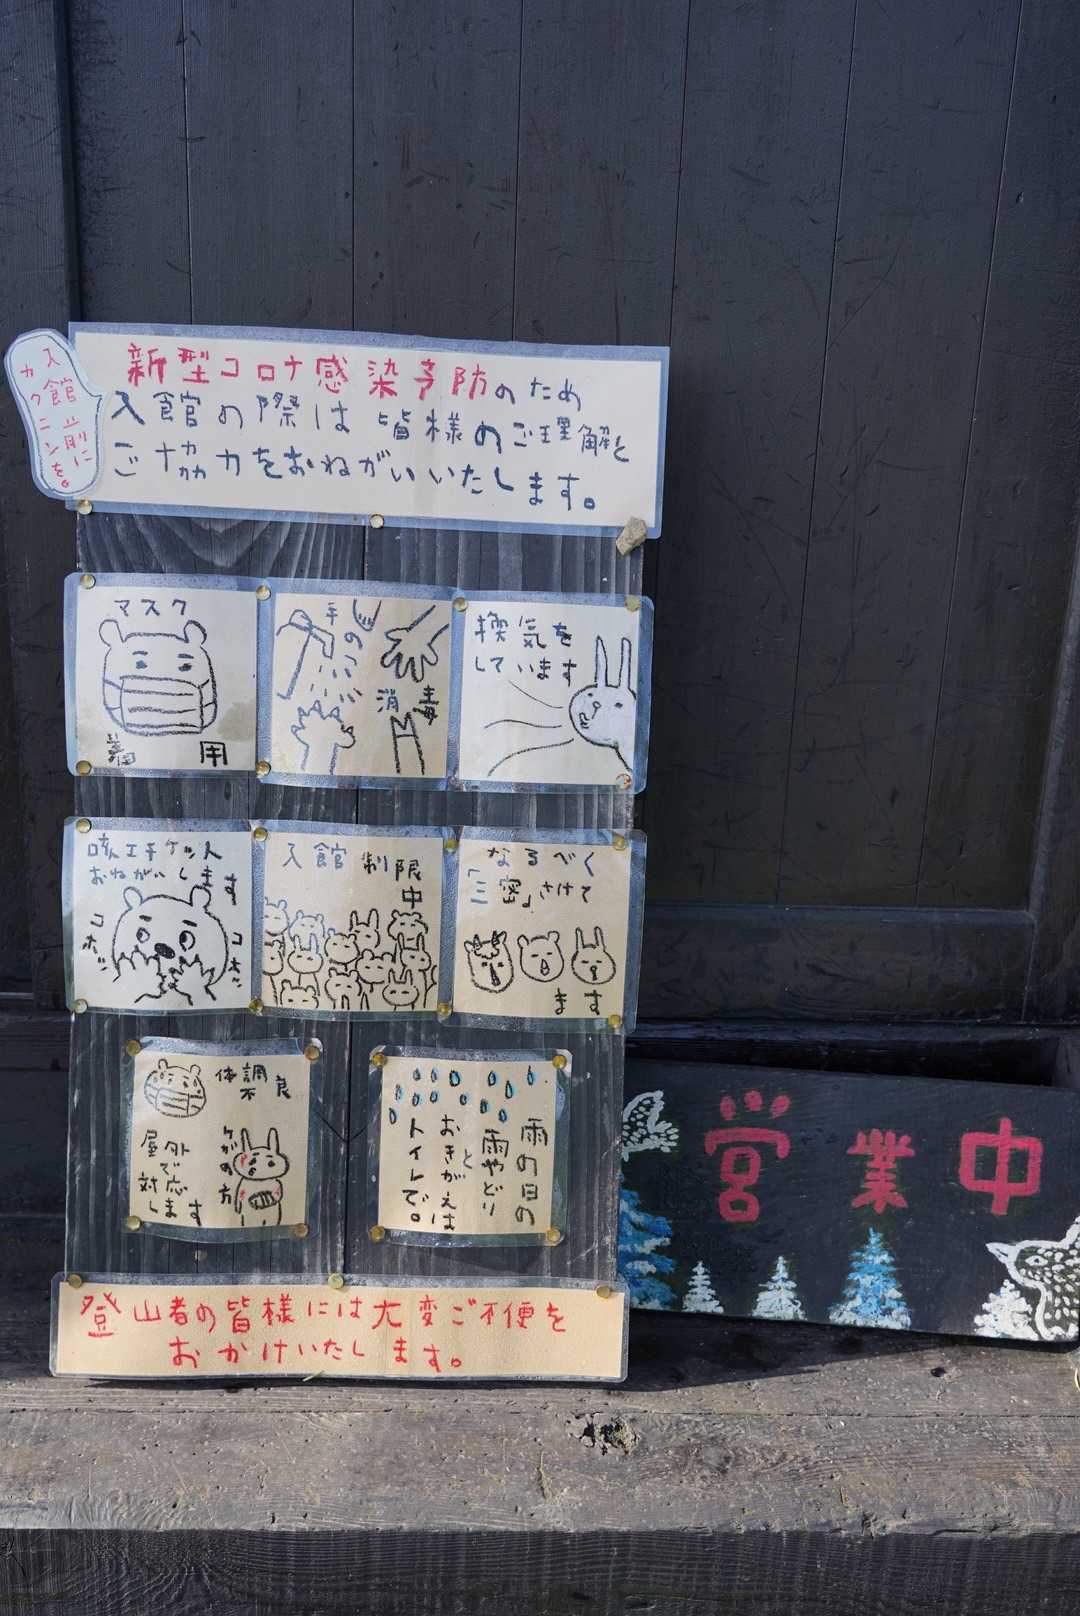 入館前に
カクニンを。
新型コロナ感染予防のため
入館の際は皆様のご理解と
ご協力をおねがいいたします。
マスク
着用
手の
消毒
換気を
しています
咳エチケット
おねがいします
コホ
コホ
入館制限
中
なるべく
「三密」さけて
ます
体調不良
ケガの方
屋外で応
対します
雨の日の
雨やどり
と
おきがえは
トイレで。
登山者の皆様には大変ご不便を
おかけいたします。
営業中